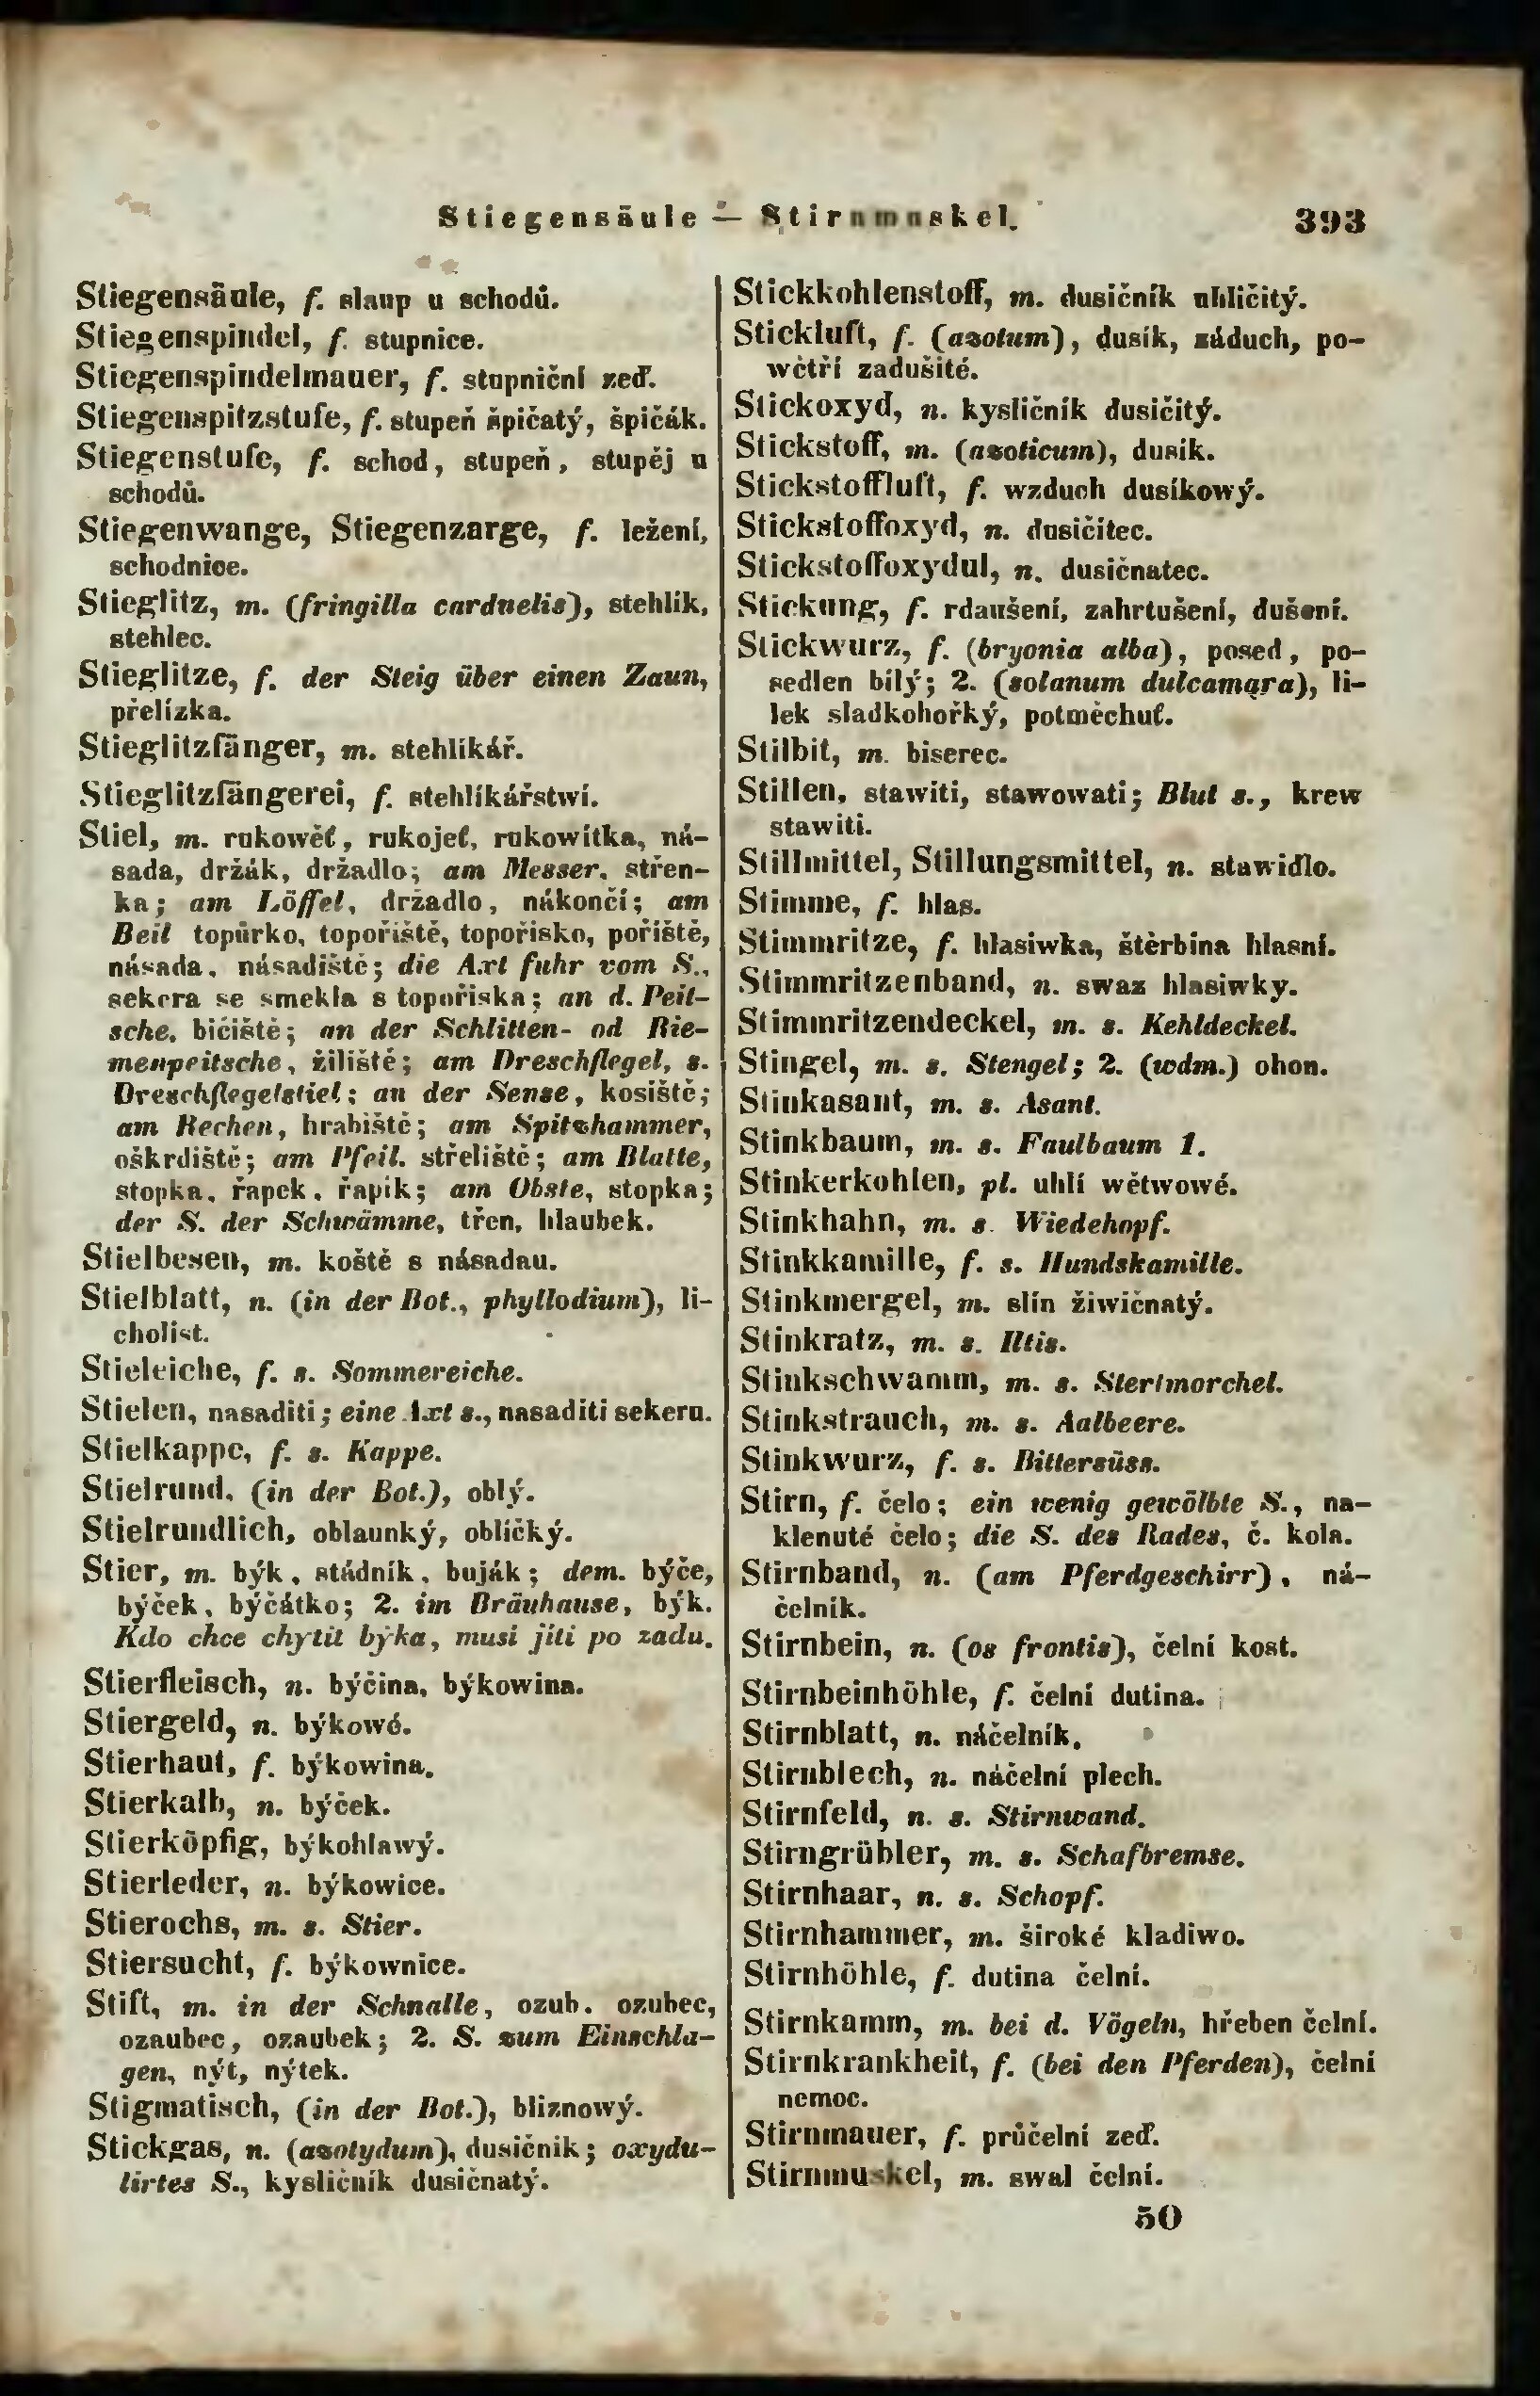 Stiegensäule — Stirnmuskel.
393
Stiegensäule, f. slaup u schodů.
Stiegenspindel, f. stupnice.
Stiegenspindelmauer, f. stupniční zeď.
Stiegenspitzstufe, f. stupeň špičatý, špičák.
Stiegenstufe, f. schod, stupeň, stupěj u
schodů.
Stiegenwange, Stiegenzarge, f. ležení,
schodnice.
Stieglitz, m. (fringilla carduelis), stehlík,
stehlec.
Stieglitze, f. der Steig über einen Zaun,
přelízka.
Stieglitzfänger, m. stehlíkář.
Stieglitzfängerei, f. stehlíkářstwí.
Stiel, m. rukowěť, rukojeť, rukowítka, ná-
sada, držák, držadlo; am Messer, střen-
ka; am Löffel, držadlo, nákončí; am
Beil topůrko, topořiště, topořisko, pořiště,
násada, násadiště; die Axt fuhr vom S.,
sekera se smekla s topořiska; an d. Peit-
sche, bičiště; an der Schlitten- od Rie-
menpeitsche, žiliště; am Dreschflegel, s.
Dreschflegelstiel; an der Sense, kosiště;
am Rechen, hrabiště; am Spitzhammer,
oškrdiště; am Pfeil, střeliště; am Blatte,
stopka, řapek, řapík; am Obste, stopka;
der S. der Schwämme, třen, hlaubek.
Stielbesen, m. koště s násadau.
Stielblatt, n. (in der Bot., phyllodium), li-
cholist.
Stieleiche, f. s. Sommereiche.
Stielen, nasaditi; eine Axt s., nasaditi sekeru.
Stielkappe, f. s. Kappe.
Stielrund, (in der Bot.), oblý.
Stielrundlich, oblaunký, oblíčký.
Stier, m. býk, stádník, buják; dem. býče,
býček, býčátko; 2. im Bräuhause, býk.
Kdo chce chytit býka, musí jíti po zadu.
Stierfleisch, n. býčina, býkowina.
Stiergeld, n. býkowé.
Stierhaut, f. býkowina.
Stierkalb, n. býček.
Stierköpfig, býkohlawý.
Stierleder, n. býkowice.
Stierochs, m. s. Stier.
Stiersucht, f. býkownice.
Stift, m. in der Schnalle, ozub, ozubec,
ozaubec, ozaubek; 2. S. zum Einschla-
gen, nýt, nýtek.
Stigmatisch, (in der Bot.), bliznowý.
Stickgas, n. (azotydum), dusičník; oxydu-
lirtes S., kysličník dusičnatý.
Stickkohlenstoff, m. dusičník uhličitý.
Stickluft, f. (azotum), dusík, záduch, po-
wětří zadušité.
Stickoxyd, n. kysličník dusičitý.
Stickstoff, m. (azoticum), dusík.
Stickstoffluft, f. wzduch dusíkowý.
Stickstoffoxyd, n. dusičitec.
Stickstoffoxydul, n. dusičnatec.
Stickung, f. rdaušení, zahrtušení, dušení.
Stickwurz, f. (bryonia alba), posed, po-
sedlen bílý; 2. (solanum dulcamara), li-
lek sladkohořký, potměchuť.
Stilbit, m. biserec.
Stillen, stawiti, stawowati; Blut s., krew
stawiti.
Stillmittel, Stillungsmittel, n. stawidlo.
Stimme, f. hlas.
Stimmritze, f. hlasiwka, štěrbina hlasní.
Stimmritzenband, n. swaz hlasiwky.
Stimmritzendeckel, m. s. Kehldeckel.
Stingel, m. s. Stengel; 2. (wdm.) ohon.
Stinkasant, m. s. Asant.
Stinkbaum, m. s. Faulbaum 1.
Stinkerkohlen, pl. uhlí wětwowé.
Stinkhahn, m. s. Wiedehopf.
Stinkkamille, f. s. Hundskamille.
Stinkmergel, m. slín žiwičnatý.
Stinkratz, m. s. Iltis.
Stinkschwamm, m. s. Stertmorchel.
Stinkstrauch, m. s. Aalbeere.
Stinkwurz, f. s. Bittersüss.
Stirn, f. čelo; ein wenig gewölbte S., na-
klenuté čelo; die S. des Rades, č. kola.
Stirnband, n. (am Pferdgeschirr), ná-
čelník.
Stirnbein, n. (os frontis), čelní kost.
Stirnbeinhöhle, f. čelní dutina.
Stirnblatt, n. náčelník.
Stirnblech, n. náčelní plech.
Stirnfeld, n. s. Stirnwand.
Stirngrübler, m. s. Schafbremse.
Stirnhaar, n. s. Schopf.
Stirnhammer, m. široké kladiwo.
Stirnhöhle, f. dutina čelní.
Stirnkamm, m. bei d. Vögeln, hřeben čelní.
Stirnkrankheit, f. (bei den Pferden), čelní
nemoc.
Stirnmauer, f. průčelní zeď.
Stirnmuskel, m. swal čelní.
50